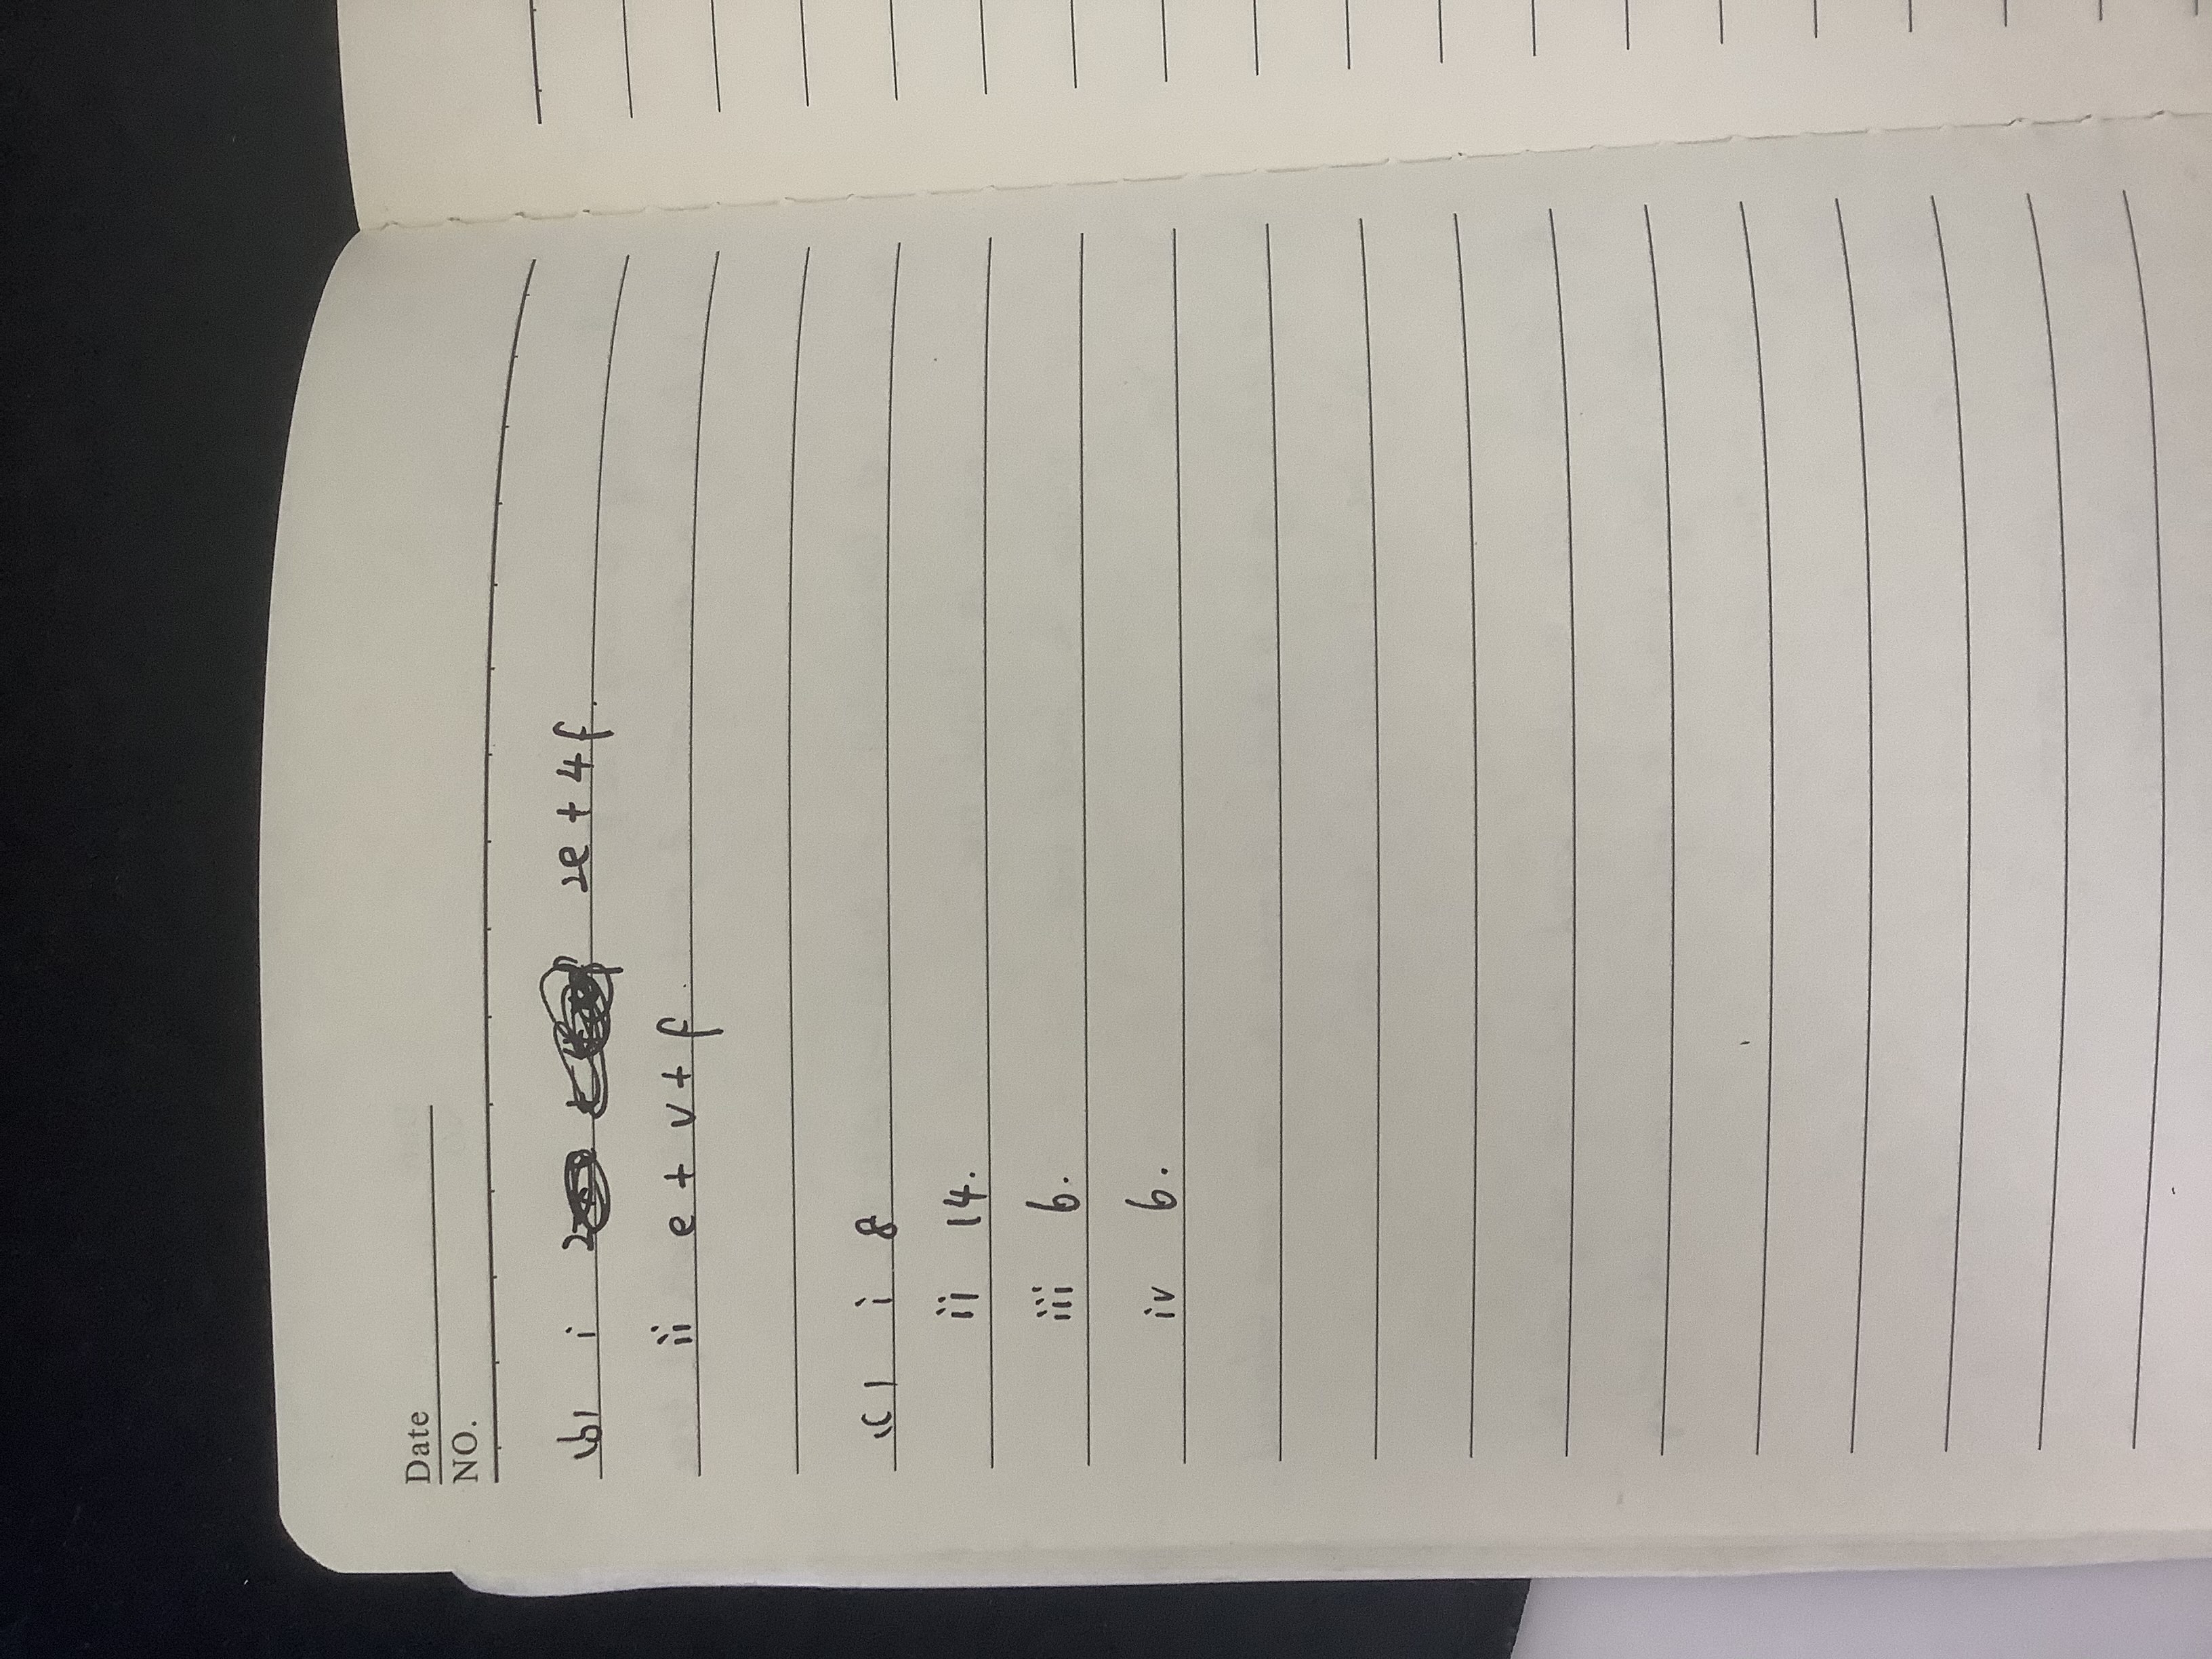 Date
NO.
(b) i 2e + 4f.
ii e + v + f.
(c) i 8
ii 14.
iii 6.
iv 6.